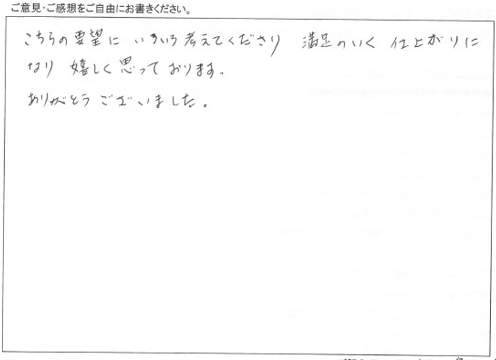 ご意見・ご感想をご自由にお書きください。
こちらの要望に いろいろ考えてくださり 満足のいく 仕上がりに
なり 嬉しく思っております。
ありがとうございました。